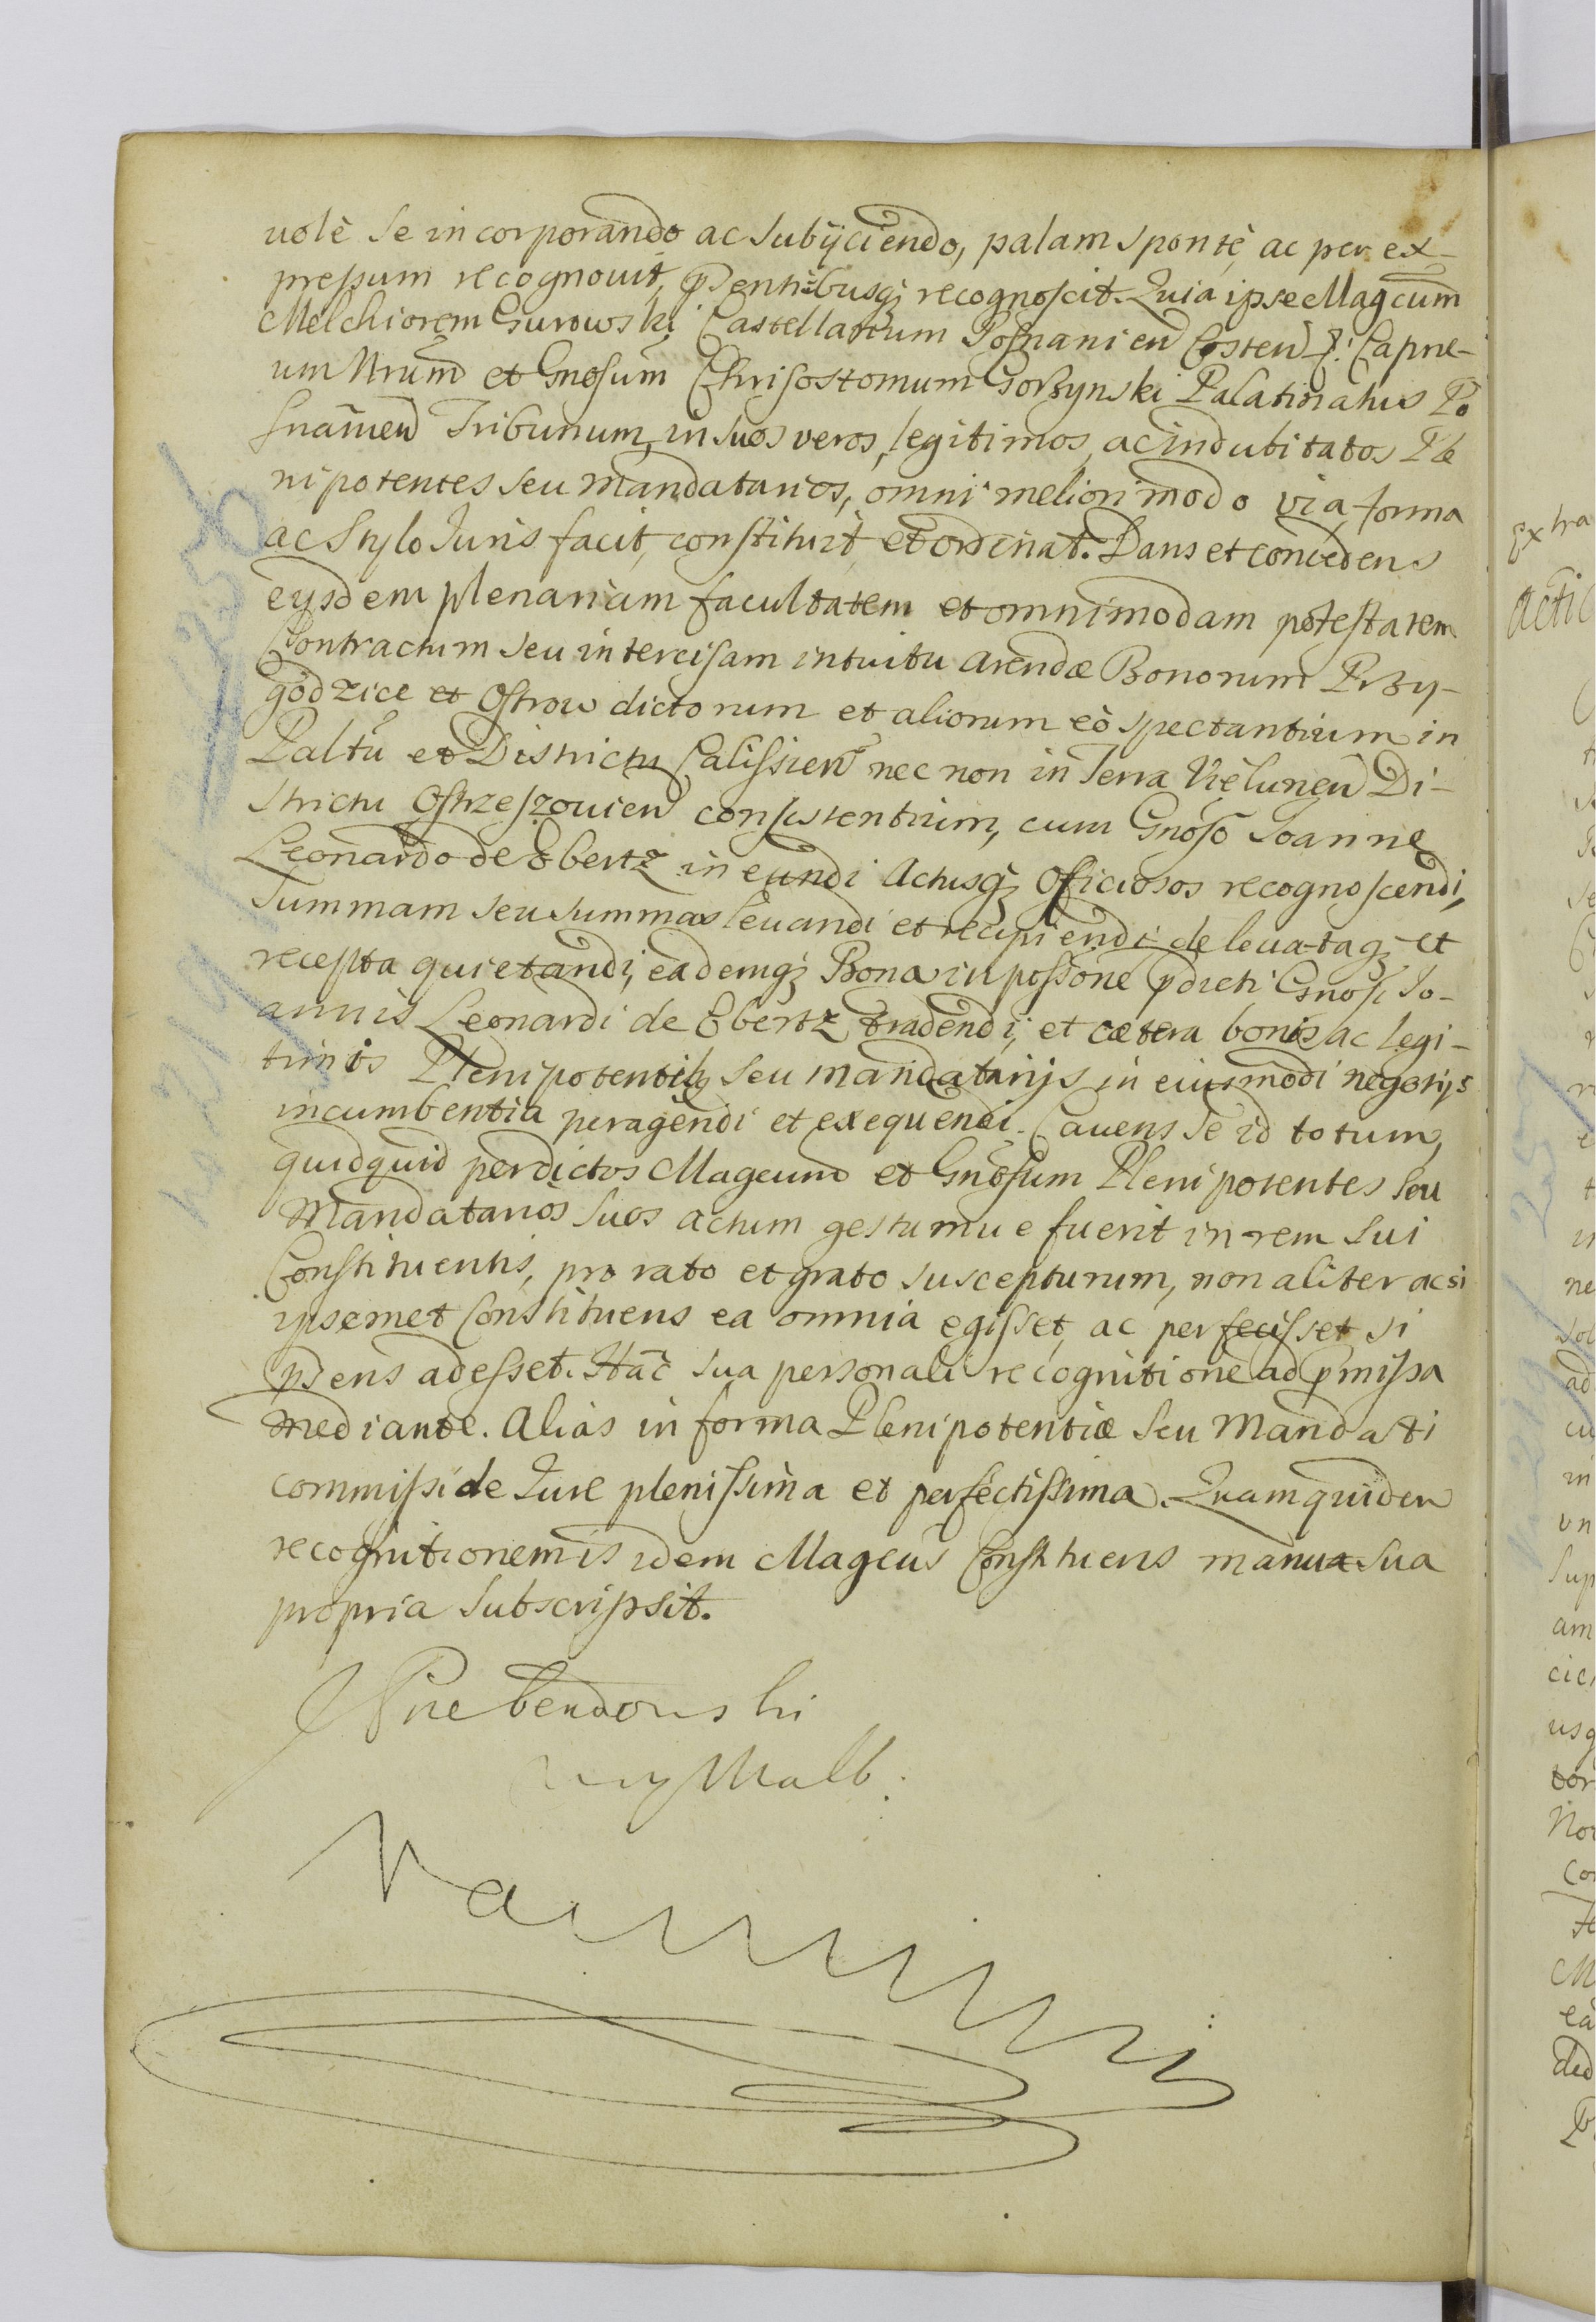 uolẻ se incorporando ac subijciendo, palam sponte ac per ex-
pressum recognouit, pñtibusqꝫ recognoscit. Quia ipse Magcum
Melchiorem Gurowski Castellanum Posnanien Costen &: Capne-
um Nrum et Gnosum Chrisostomum Gorzynski Palatinatus Po
snanien Tribunum, in suos veros, legitimos, ac indubitatos Ple
nipotentes seu mandatarios, omni meliori modo via, forma
ac Stylo Iuris facit, constituit, et ordinat. Dans et concedens
eysdem plenariam facultatem et omnimodam potestatem
Contractum seu intercisam intuitu arendæ Bonorum Przy-
godzice et Ostrow dictorum et aliorum eò spectantium in
Paltu et Districtu Calissien nec non in Terra Vielunen Di-
strictu Ostrzeszouien consistentium, cum Gnoso Ioanne
Leonardo de Ebertz ineundi Actusqꝫ officiosos recognoscendi,
Summam seu summas leuandi et recipiendi, de leuatаqꝫ et
recepta quietandi, eademqꝫ Bona in possone pdicti Gnosi Io-
annis Leonardi de Ebertz tradendi, et cætera bonis ac legi-
timis Plenipotentibꝫ seu mandatarijs in eiusmodi negotijs
incumbentia peragendi et exequendi. Cauens se id totum,
quidquid per dictos Magcum et Gnosum Plenipotentes seu
Mandatarios suos actum gestumue fuerit in rem sui
Constituentis, pro rato et grato suscepturum, non aliter acsi
ipsemet Constituens ea omnia egisset, ac perfecisset si
pñsens adesset. Hac sua personali recognitione ad pmissa
mediante. Alias in forma Plenipotentiæ seu Mandati
commissi de Iure plenissima et perfectissima. Quamquidem
recognitionem is idem Magcus Constituens manu sua
propria subscripsit.
Prebendowski
Malb.
extra